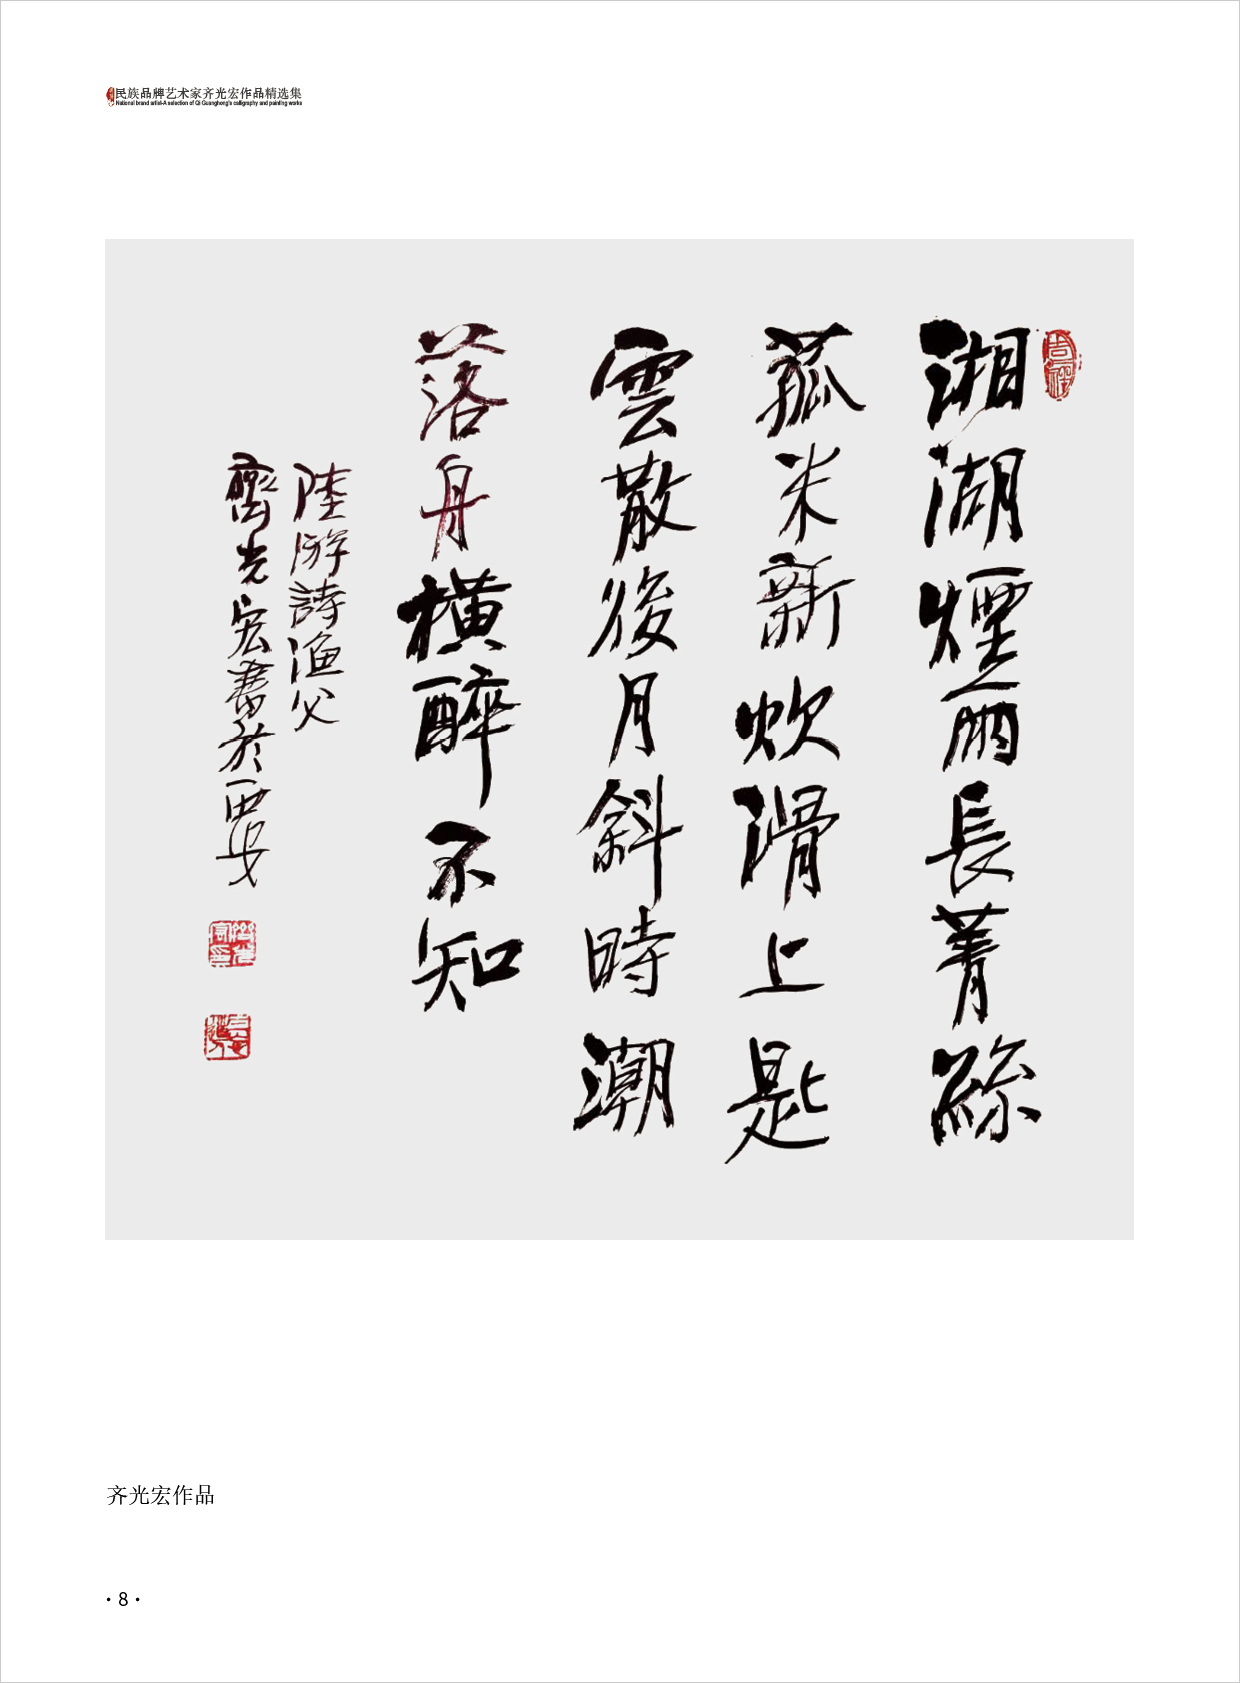 民族品牌艺术家齐光宏作品精选集
National brand artist-A selection of Qi Guanghong's calligraphy and painting works
湘湖煙雨長菁絲
菰米新炊滑上匙
雲散後月斜時潮
落舟橫醉不知
陸游詩漁父
齊光宏書於西安
齐光宏作品
·8·